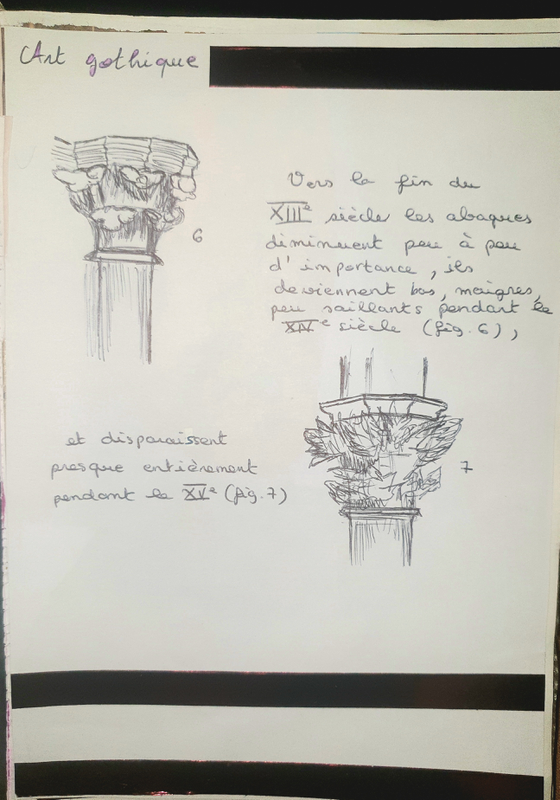 Art gothique
Vers la fin du
XIIIe siècle les abaques
diminuent peu à peu
d'importance, ils
deviennent bas, maigres,
peu saillants pendant le
XIVe siècle (fig. 6),
6
et disparaissent
presque entièrement
pendant le XVe (fig. 7)
7